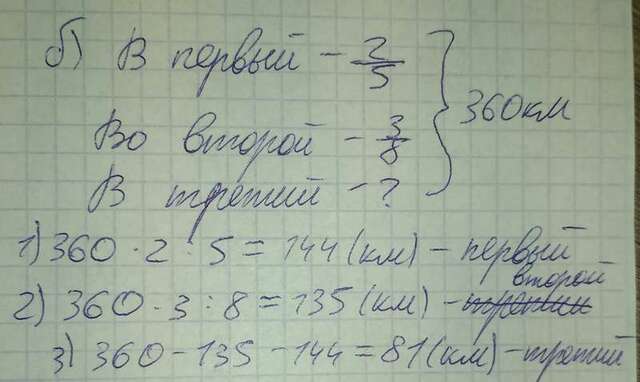 б) В первый - 2/5
Во второй - 3/8
В третий - ?
360км
1) 360 · 2 : 5 = 144 (км) - первый
второй
2) 360 · 3 : 8 = 135 (км) -
3) 360 - 135 - 144 = 81 (км) - третий